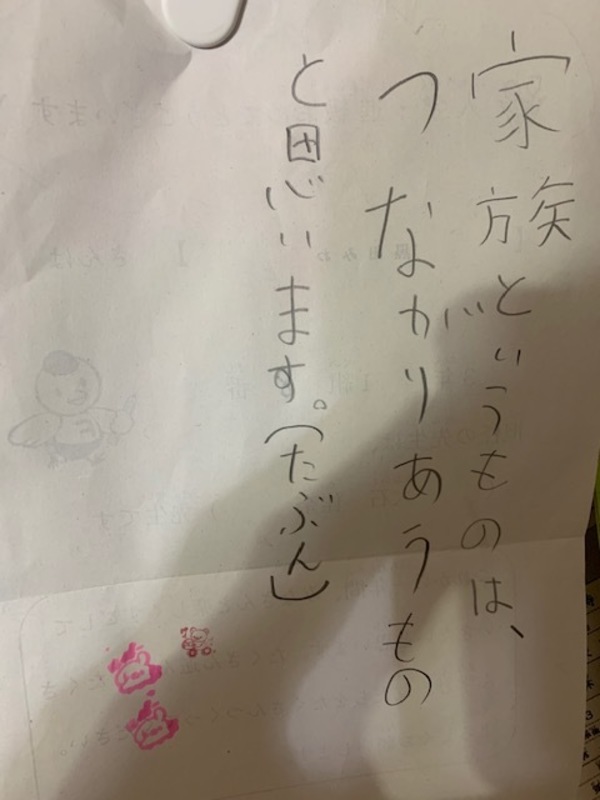 家族というものは、
つながりあうもの
と思います。(たぶん)